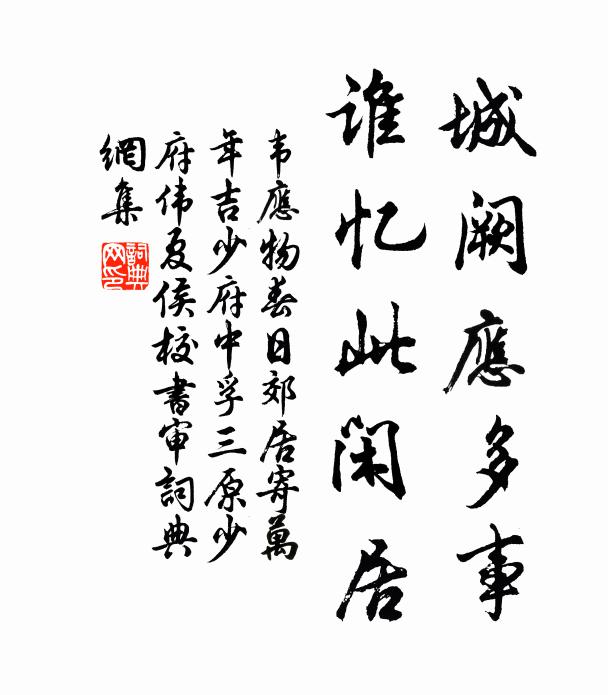 城闕應多事
誰忆此閑居
韦應物春日郊居寄萬
年吉少府中孚三原少
府伟夏侯校書审詞典
網集
詞典
网印